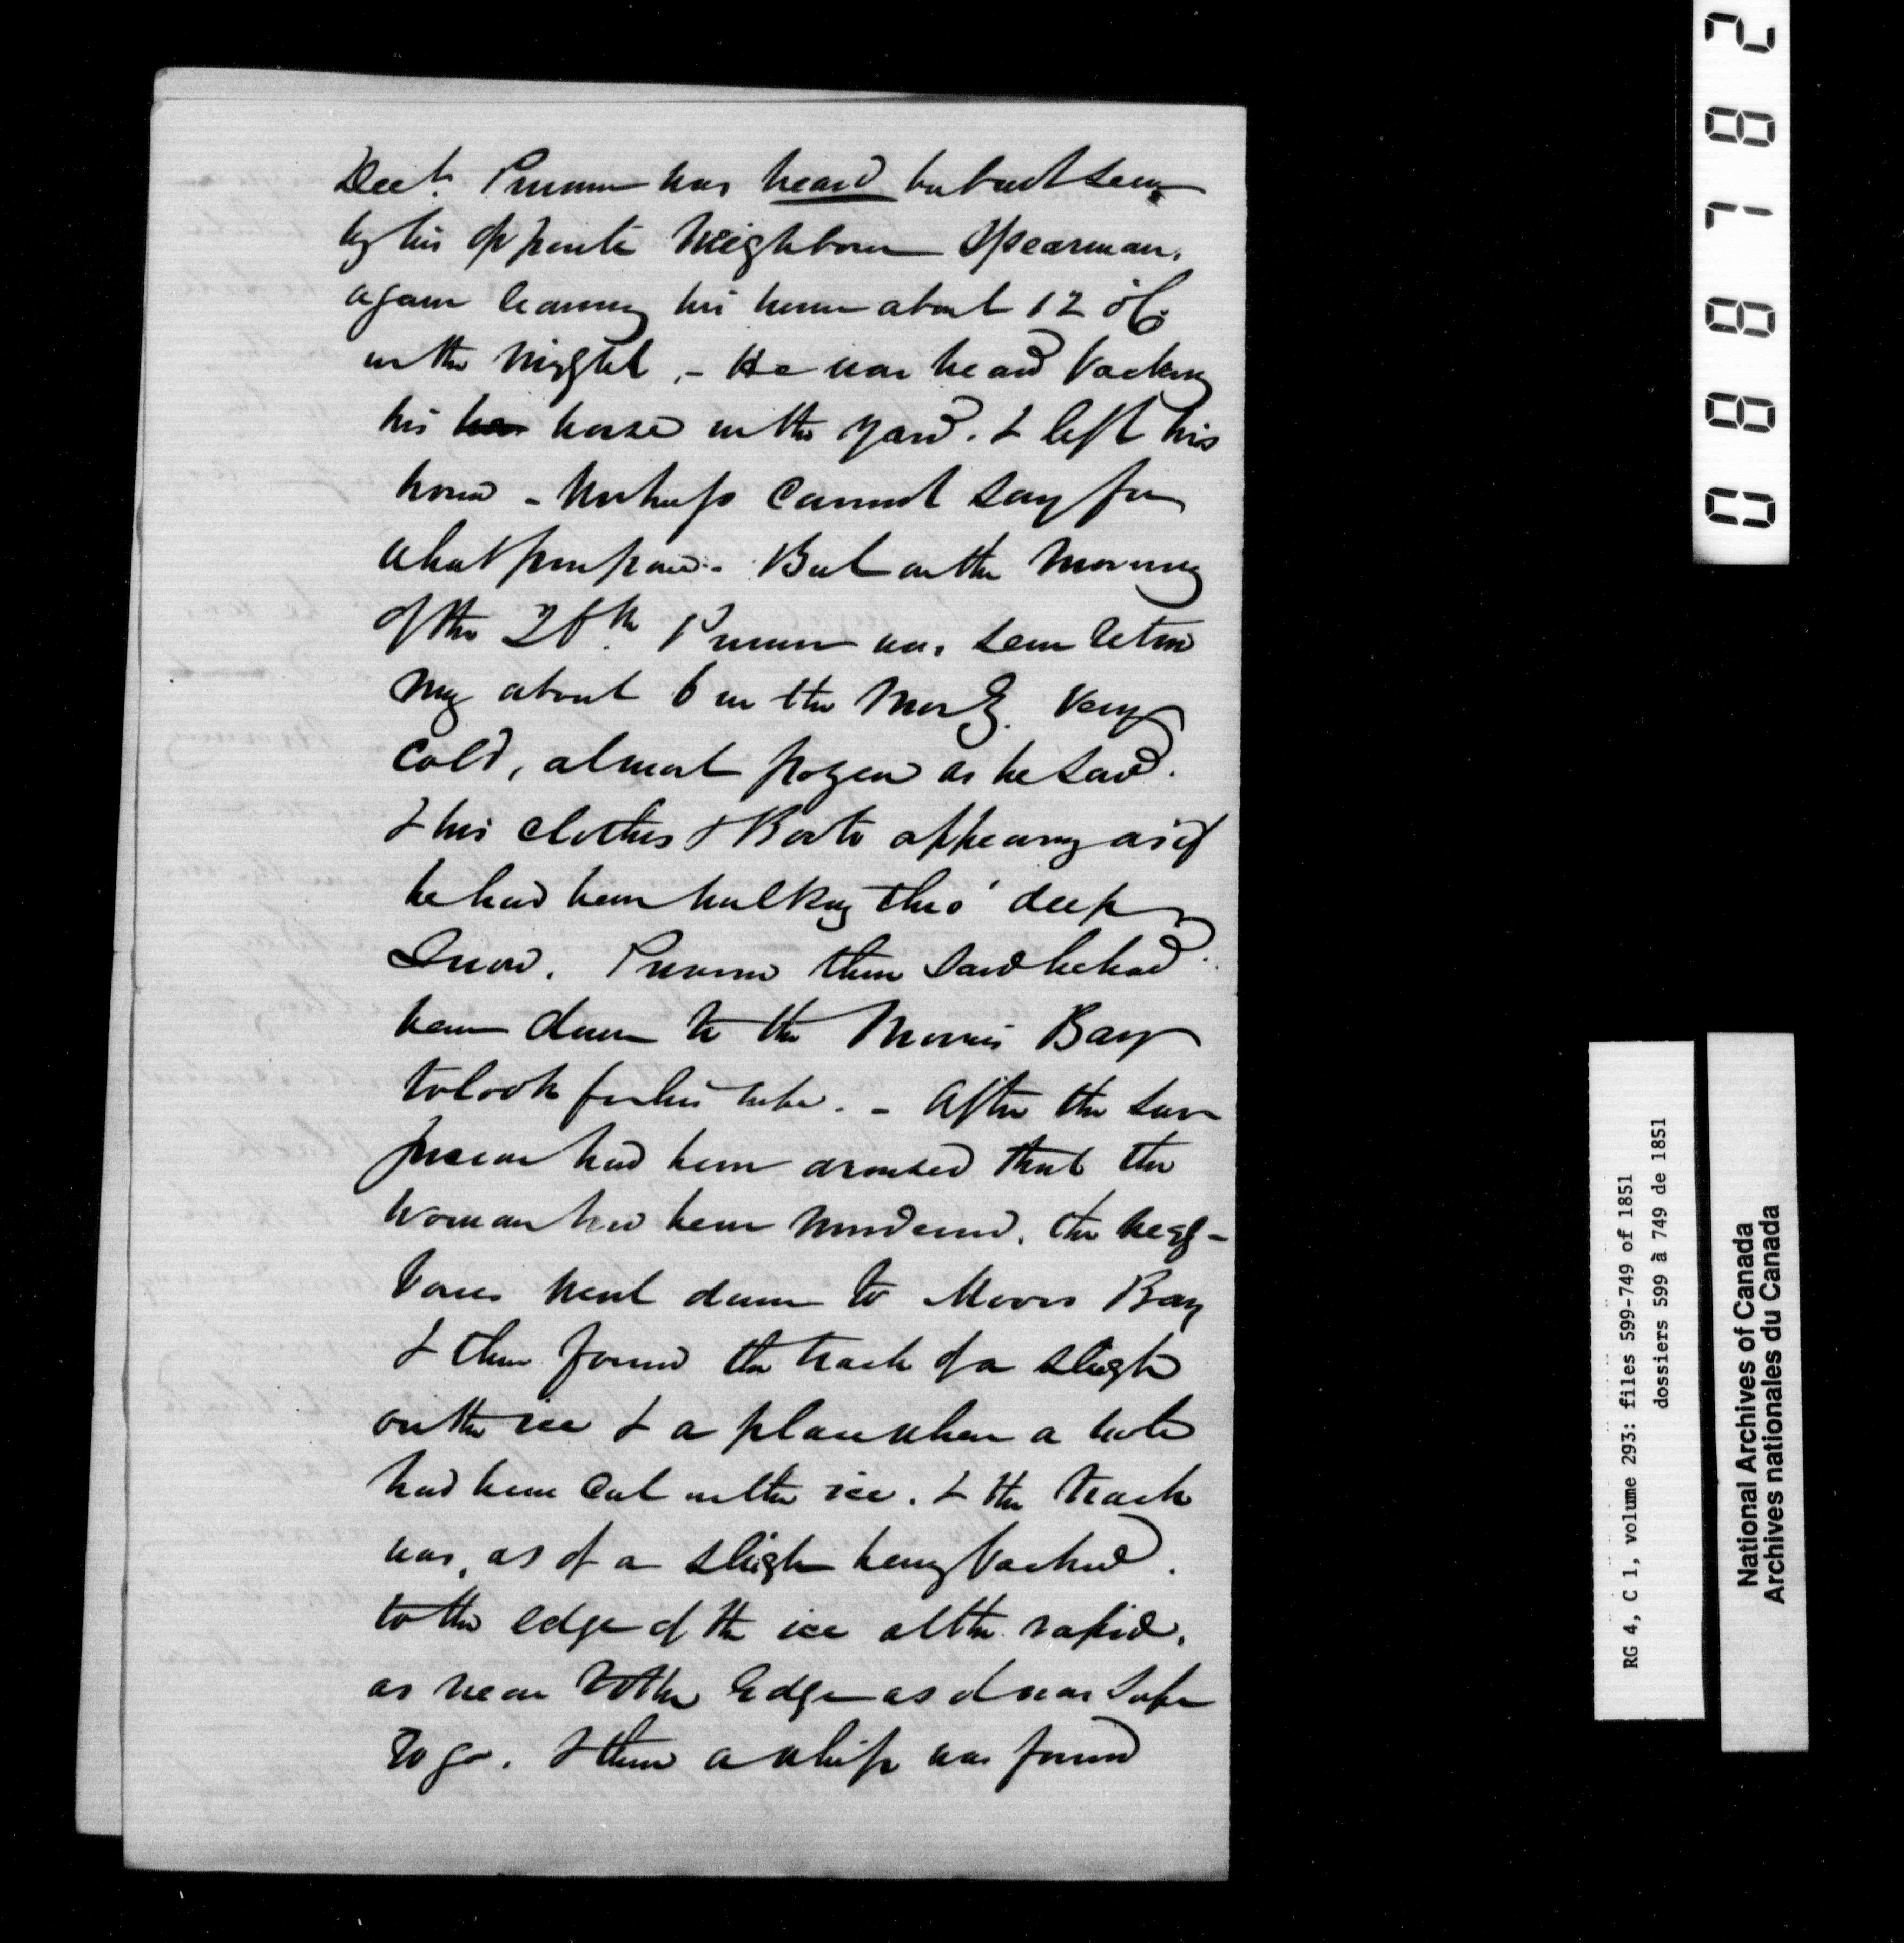 Decr. Prisoner was heard but not seen
by his opposite Neighbour Spearman,
again leaving his home about 12 oC.
in the Night. - He was heard backing
his horse in the yard. & left his
home - Witness cannot say for
what purpose. - But on the Morning
of the 26th. Prisoner was seen return
ing about 6 in the Morg. Very
Cold, almost frozen as he said.
& his clothes & Boots appearing as if
he had been walking thro' deep
Snow. Prisoner then said he had
been down to the Morris Bay
to look for his wife. - After the sus
picion had been aroused that the
Woman had been Murdered. the neigh-
bours went down to Morris Bay
& then found the track of a sleigh
on the ice & a place where a hole
had been cut in the ice. & the track
was, as of a sleigh being backed.
to the edge of the ice at the rapid,
as near to the Edge as it was safe
to go. & there a whip was found
088782
RG 4, C 1, volume 293: files 599-749 of 1851
dossiers 599 à 749 de 1851
National Archives of Canada
Archives nationales du Canada